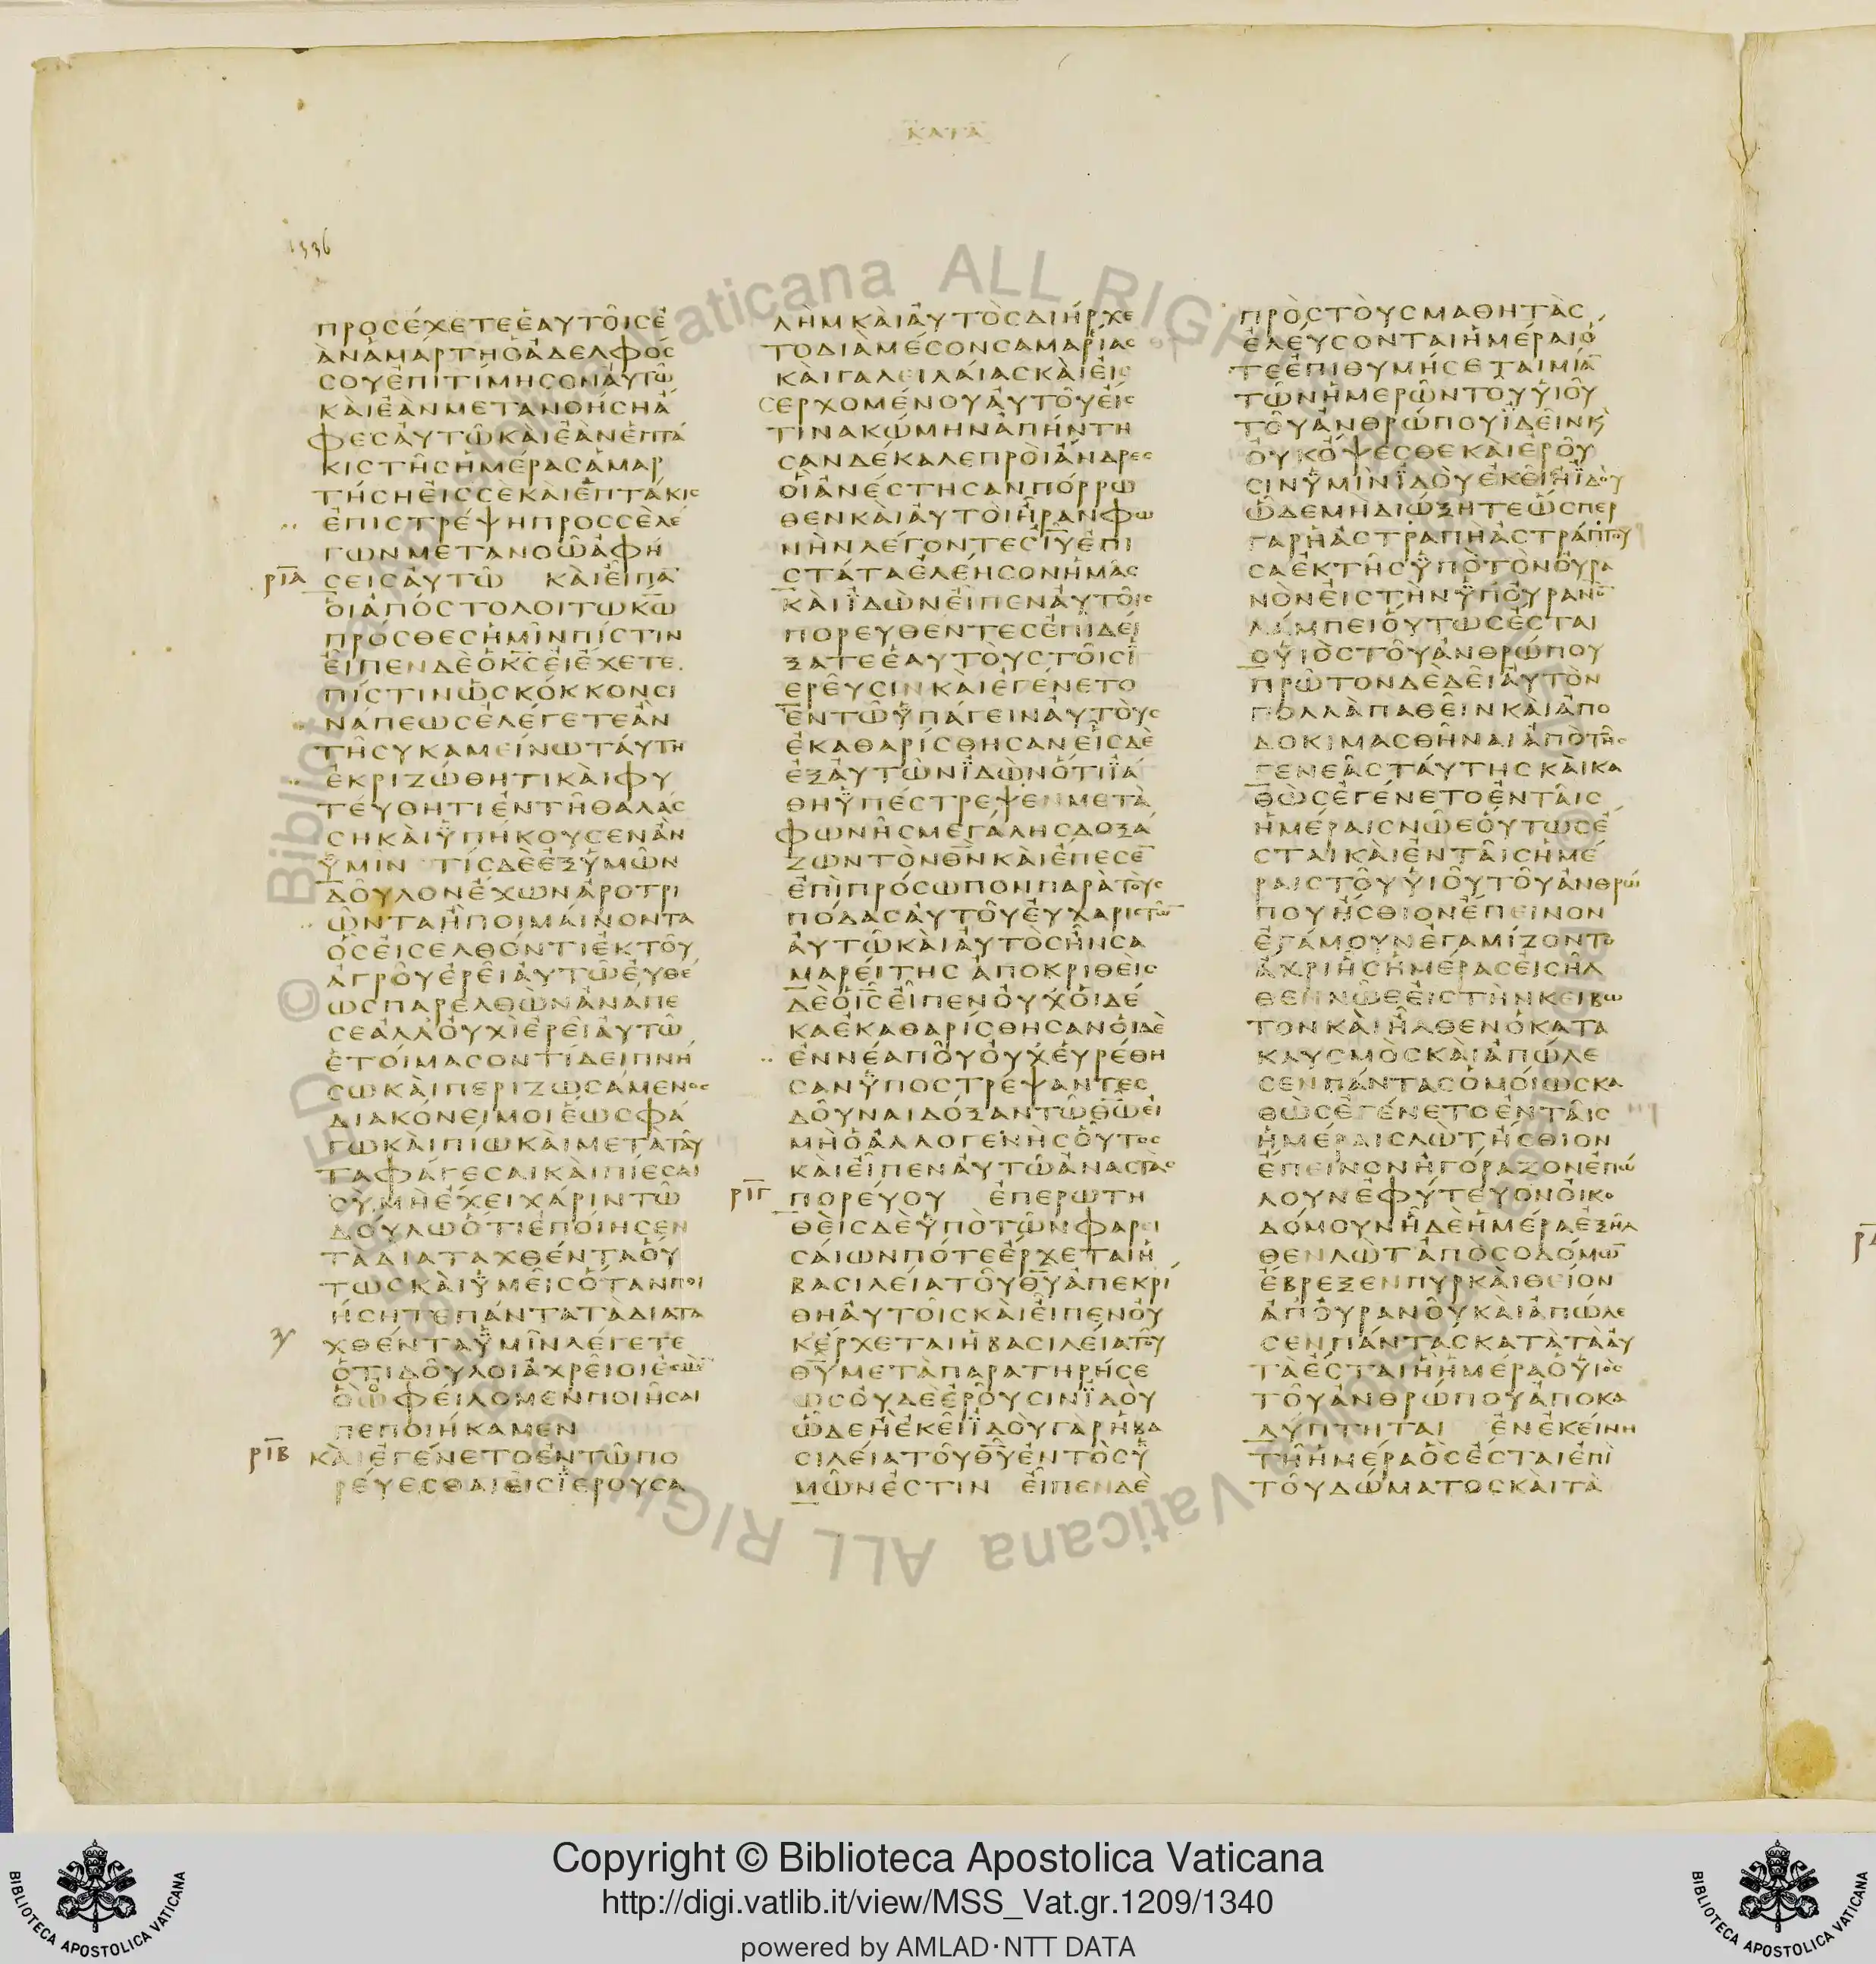 ΚΑΤΑ
1336
ΠΡΟΣΕΧΕΤΕΕΑΥΤΟΙΣΕ
ΑΝΑΜΑΡΤΗΟΑΔΕΛΦΟΣ
ΣΟΥΕΠΙΤΙΜΗΣΟΝΑΥΤΩ
ΚΑΙΕΑΝΜΕΤΑΝΟΗΣΗΑ
ΦΕΣΑΥΤΩΚΑΙΕΑΝΕΠΤΑ
ΚΙΣΤΗΣΗΜΕΡΑΣΑΜΑΡ
ΤΗΣΗΕΙΣΣΕΚΑΙΕΠΤΑΚΙΣ
ΕΠΙΣΤΡΕΨΗΠΡΟΣΣΕΛΕ
ΓΩΝΜΕΤΑΝΟΩΑΦΗ
ΡΙΑ ΣΕΙΣΑΥΤΩ ΚΑΙΕΙΠΑ¯
ΟΙΑΠΟΣΤΟΛΟΙΤΩΚΩ
ΠΡΟΣΘΕΣΗΜΙΝΠΙΣΤΙΝ
ΕΙΠΕΝΔΕΟΚΣΕΙΕΧΕΤΕ
ΠΙΣΤΙΝΩΣΚΟΚΚΟΝΣΙ
ΝΑΠΕΩΣΕΛΕΓΕΤΕΑΝ
ΤΗΣΥΚΑΜΕΙΝΩΤΑΥΤΗ
ΕΚΡΙΖΩΘΗΤΙΚΑΙΦΥ
ΤΕΥΘΗΤΙΕΝΤΗΘΑΛΑΣ
ΣΗΚΑΙΫΠΗΚΟΥΣΕΝΑΝ
ΫΜΙΝ ΤΙΣΔΕΕΞΫΜΩΝ
ΔΟΥΛΟΝΕΧΩΝΑΡΟΤΡΙ
ΩΝΤΑΗΠΟΙΜΑΙΝΟΝΤΑ
ΟΣΕΙΣΕΛΘΟΝΤΙΕΚΤΟΥ
ΑΓΡΟΥΕΡΕΙΑΥΤΩΕΥΘΕ
ΩΣΠΑΡΕΛΘΩΝΑΝΑΠΕ
ΣΕΑΛΛΟΥΧΙΕΡΕΙΑΥΤΩ
ΕΤΟΙΜΑΣΟΝΤΙΔΕΙΠΝΗ
ΣΩΚΑΙΠΕΡΙΖΩΣΑΜΕΝΟΣ
ΔΙΑΚΟΝΕΙΜΟΙΕΩΣΦΑ
ΓΩΚΑΙΠΙΩΚΑΙΜΕΤΑΤΑΥ
ΤΑΦΑΓΕΣΑΙΚΑΙΠΙΕΣΑΙ
ΣΥΜΗΕΧΕΙΧΑΡΙΝΤΩ
ΔΟΥΛΩΟΤΙΕΠΟΙΗΣΕΝ
ΤΑΔΙΑΤΑΧΘΕΝΤΑΟΥ
ΤΩΣΚΑΙΫΜΕΙΣΟΤΑΝΠΟΙ
ΗΣΗΤΕΠΑΝΤΑΤΑΔΙΑΤΑ
ΧΘΕΝΤΑΫΜΙΝΛΕΓΕΤΕ
ΟΤΙΔΟΥΛΟΙΑΧΡΕΙΟΙΕΣΜΕ¯
ΟΩΦΕΙΛΟΜΕΝΠΟΙΗΣΑΙ
ΠΕΠΟΙΗΚΑΜΕΝ
ΡΙΒ ΚΑΙΕΓΕΝΕΤΟΕΝΤΩΠΟ
ΡΕΥΕΣΘΑΙΕΙΣΪΕΡΟΥΣΑ
ΛΗΜΚΑΙΑΥΤΟΣΔΙΗΡΧΕ
ΤΟΔΙΑΜΕΣΟΝΣΑΜΑΡΙΑΣ
ΚΑΙΓΑΛΕΙΛΑΙΑΣΚΑΙΕΙΣ
ΣΕΡΧΟΜΕΝΟΥΑΥΤΟΥΕΙΣ
ΤΙΝΑΚΩΜΗΝΑΠΗΝΤΗ
ΣΑΝΔΕΚΑΛΕΠΡΟΙΑΝΔΡΕΣ
ΟΙΑΝΕΣΤΗΣΑΝΠΟΡΡΩ
ΘΕΝΚΑΙΑΥΤΟΙΗΡΑΝΦΩ
ΝΗΝΛΕΓΟΝΤΕΣΙΥΕΠΙ
ΣΤΑΤΑΕΛΕΗΣΟΝΗΜΑΣ
ΚΑΙΪΔΩΝΕΙΠΕΝΑΥΤΟΙΣ
ΠΟΡΕΥΘΕΝΤΕΣΕΠΙΔΕΙ
ΞΑΤΕΕΑΥΤΟΥΣΤΟΙΣΙ
ΕΡΕΥΣΙΝΚΑΙΕΓΕΝΕΤΟ
ΕΝΤΩΫΠΑΓΕΙΝΑΥΤΟΥΣ
ΕΚΑΘΑΡΙΣΘΗΣΑΝΕΙΣΔΕ
ΕΞΑΥΤΩΝΪΔΩΝΟΤΙΪΑ
ΘΗΫΠΕΣΤΡΕΨΕΝΜΕΤΑ
ΦΩΝΗΣΜΕΓΑΛΗΣΔΟΞΑ
ΖΩΝΤΟΝΘΝΚΑΙΕΠΕΣΕ¯
ΕΠΙΠΡΟΣΩΠΟΝΠΑΡΑΤΟΥΣ
ΠΟΔΑΣΑΥΤΟΥΕΥΧΑΡΙΣΤΩ¯
ΑΥΤΩΚΑΙΑΥΤΟΣΗΝΣΑ
ΜΑΡΕΙΤΗΣ ΑΠΟΚΡΙΘΕΙΣ
ΔΕΟΙΣΕΙΠΕΝΟΥΧΟΙΔΕ
ΚΑΕΚΑΘΑΡΙΣΘΗΣΑΝΟΙΔΕ
ΕΝΝΕΑΠΟΥΟΥΧΕΥΡΕΘΗ
ΣΑΝΫΠΟΣΤΡΕΨΑΝΤΕΣ
ΔΟΥΝΑΙΔΟΞΑΝΤΩΘΩΕΙ
ΜΗΟΑΛΛΟΓΕΝΗΣΟΥΤΟΣ
ΚΑΙΕΙΠΕΝΑΥΤΩΑΝΑΣΤΑΣ
ΡΙΓ ΠΟΡΕΥΟΥ ΕΠΕΡΩΤΗ
ΘΕΙΣΔΕΫΠΟΤΩΝΦΑΡΕΙ
ΣΑΙΩΝΠΟΤΕΕΡΧΕΤΑΙΗ
ΒΑΣΙΛΕΙΑΤΟΥΘΥΑΠΕΚΡΙ
ΘΗΑΥΤΟΙΣΚΑΙΕΙΠΕΝΟΥ
ΚΕΡΧΕΤΑΙΗΒΑΣΙΛΕΙΑΤΟΥ
ΘΥΜΕΤΑΠΑΡΑΤΗΡΗΣΕ
ΩΣΟΥΔΕΕΡΟΥΣΙΝΪΔΟΥ
ΩΔΕΗΕΚΕΙΪΔΟΥΓΑΡΗΒΑ
ΣΙΛΕΙΑΤΟΥΘΥΕΝΤΟΣΫ
ΜΩΝΕΣΤΙΝ ΕΙΠΕΝΔΕ
ΠΡΟΣΤΟΥΣΜΑΘΗΤΑΣ
ΕΛΕΥΣΟΝΤΑΙΗΜΕΡΑΙΟ
ΤΕΕΠΙΘΥΜΗΣΕΤΑΙΜΙΑ¯
ΤΩΝΗΜΕΡΩΝΤΟΥΥΙΟΥ
ΤΟΥΑΝΘΡΩΠΟΥΪΔΕΙΝΚ
ΟΥΚΟΨΕΣΘΕΚΑΙΕΡΟΥ
ΣΙΝΫΜΙΝΪΔΟΥΕΚΕΙΗΪΔΟΥ
ΩΔΕΜΗΔΙΩΞΗΤΕΩΣΠΕΡ
ΓΑΡΗΑΣΤΡΑΠΗΑΣΤΡΑΠΤΟΥ
ΣΑΕΚΤΗΣΫΠΟΤΟΝΟΥΡΑ
ΝΟΝΕΙΣΤΗΝΫΠΟΥΡΑΝΟ¯
ΛΑΜΠΕΙΟΥΤΩΣΕΣΤΑΙ
ΟΥΙΟΣΤΟΥΑΝΘΡΩΠΟΥ
ΠΡΩΤΟΝΔΕΔΕΙΑΥΤΟΝ
ΠΟΛΛΑΠΑΘΕΙΝΚΑΙΑΠΟ
ΔΟΚΙΜΑΣΘΗΝΑΙΑΠΟΤΗΣ
ΓΕΝΕΑΣΤΑΥΤΗΣΚΑΙΚΑ
ΘΩΣΕΓΕΝΕΤΟΕΝΤΑΙΣ
ΗΜΕΡΑΙΣΝΩΕΟΥΤΩΣΕ
ΣΤΑΙΚΑΙΕΝΤΑΙΣΗΜΕ
ΡΑΙΣΤΟΥΥΙΟΥΤΟΥΑΝΘΡΩ
ΠΟΥΗΣΘΙΟΝΕΠΕΙΝΟΝ
ΕΓΑΜΟΥΝΕΓΑΜΙΖΟΝΤΟ
ΑΧΡΙΗΣΗΜΕΡΑΣΕΙΣΗΛ
ΘΕΝΝΩΕΕΙΣΤΗΝΚΕΙΒΩ
ΤΟΝΚΑΙΗΛΘΕΝΟΚΑΤΑ
ΚΛΥΣΜΟΣΚΑΙΑΠΩΛΕ
ΣΕΝΠΑΝΤΑΣΟΜΟΙΩΣΚΑ
ΘΩΣΕΓΕΝΕΤΟΕΝΤΑΙΣ
ΗΜΕΡΑΙΣΛΩΤΗΣΘΙΟΝ
ΕΠΕΙΝΟΝΗΓΟΡΑΖΟΝΕΠΩ
ΛΟΥΝΕΦΥΤΕΥΟΝΟΙΚΟ
ΔΟΜΟΥΝΗΔΕΗΜΕΡΑΕΞΗΛ
ΘΕΝΛΩΤΑΠΟΣΟΔΟΜΩ¯
ΕΒΡΕΞΕΝΠΥΡΚΑΙΘΕΙΟΝ
ΑΠΟΥΡΑΝΟΥΚΑΙΑΠΩΛΕ
ΣΕΝΠΑΝΤΑΣΚΑΤΑΤΑΑΥ
ΤΑΕΣΤΑΙΗΗΜΕΡΑΟΫΙΟΣ
ΤΟΥΑΝΘΡΩΠΟΥΑΠΟΚΑ
ΛΥΠΤΗΤΑΙ ΕΝΕΚΕΙΝΗ
ΤΗΗΜΕΡΑΟΣΕΣΤΑΙΕΠΙ
ΤΟΥΔΩΜΑΤΟΣΚΑΙΤΑ
Copyright © Biblioteca Apostolica Vaticana
http://digi.vatlib.it/view/MSS_Vat.gr.1209/1340
powered by AMLAD·NTT DATA
BIBLIOTECA APOSTOLICA VATICANA
BIBLIOTECA APOSTOLICA VATICANA